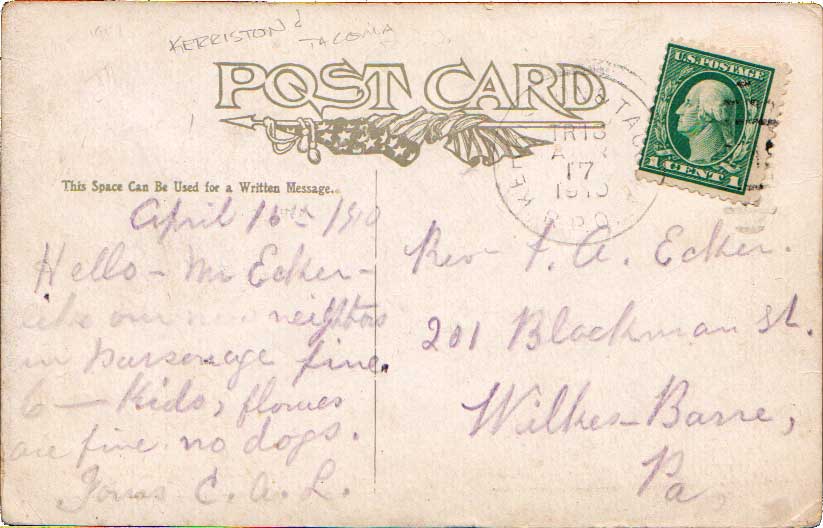 KERRISTON &
TACOMA
POST CARD
U.S. POSTAGE
1 CENT 1
TR 18
APR
17
1910
R.P.O.
This Space Can Be Used for a Written Message.
April 16 - 1910
Hello - Mr Ecker -
like our new neighbors
in Parsonage fine.
6 - Kids, flowes
are fine no dogs.
Yours C. A. L.
Rev - F. A. Ecker.
201 Blackman St.
Wilkes-Barre,
Pa,